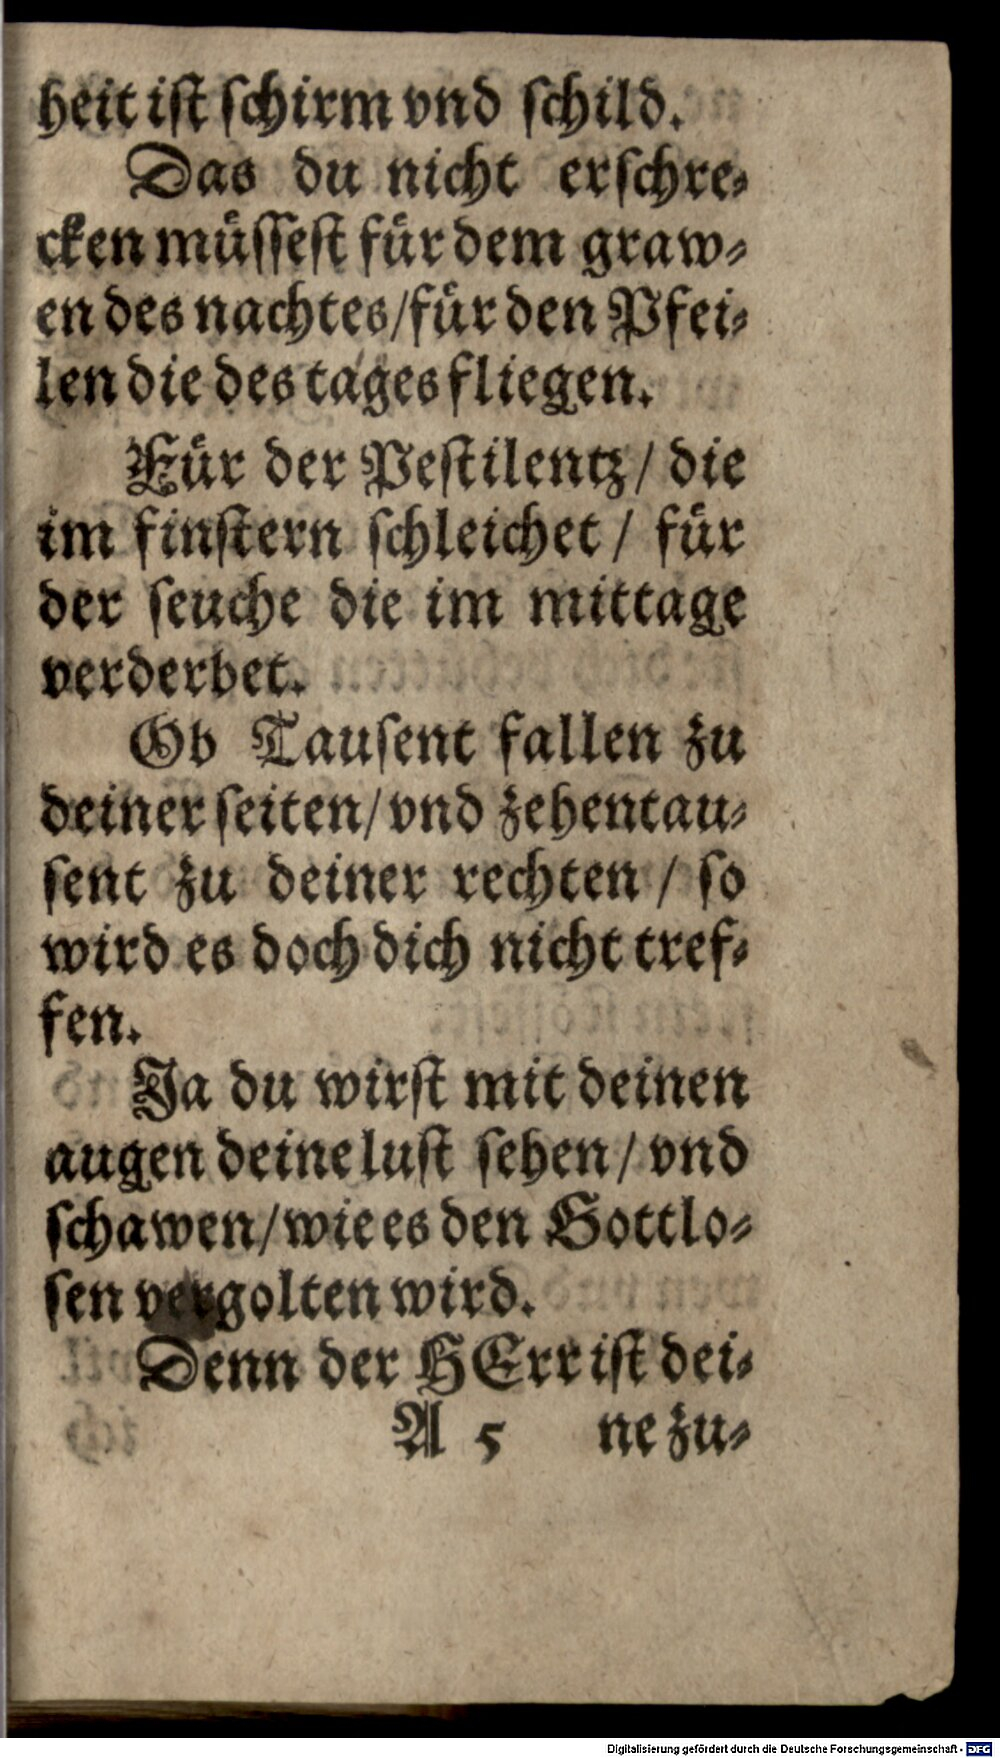 heit ist schirm vnd schild.
Das du nicht erschre⸗
cken müssest für dem graw⸗
en des nachtes/für den Pfei⸗
len die des tages fliegen.
Für der Pestilentz/ die
im finstern schleichet/ für
der seuche die im mittage
verderbet.
Ob Tausent fallen zu
deiner seiten/vnd zehentau⸗
sent zu deiner rechten/ so
wird es doch dich nicht tref⸗
fen.
Ja du wirst mit deinen
augen deine lust sehen/ vnd
schawen/wie es den Gottlo⸗
sen vergolten wird.
Denn der HErr ist dei⸗
A 5 ne zu⸗
Digitalisierung gefördert durch die Deutsche Forschungsgemeinschaft - DFG